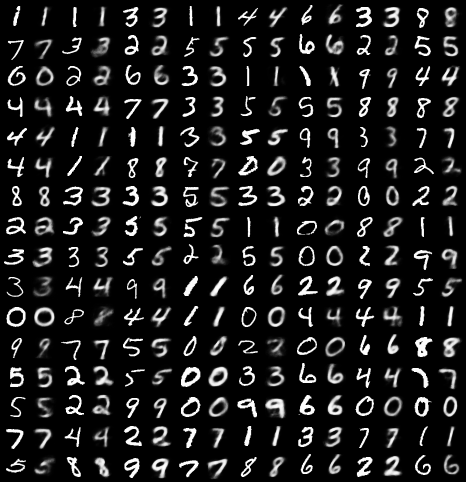 1 1 1 1 3 3 1 1 4 4 6 6 3 3 8 8
7 7 3 3 2 2 5 5 5 5 6 6 2 2 5 5
0 0 2 2 6 6 3 3 1 1 1 1 9 9 4 4
4 4 4 4 7 7 3 3 5 5 5 5 8 8 8 8
4 4 1 1 1 1 3 3 5 5 9 9 3 3 7 7
4 4 1 1 8 8 7 7 0 0 3 3 9 9 2 2
8 8 3 3 3 3 5 5 3 3 2 2 0 0 2 2
2 2 3 3 5 5 5 5 1 1 0 0 8 8 1 1
3 3 3 3 5 5 2 2 5 5 0 0 2 2 9 9
3 3 4 4 9 9 1 1 6 6 2 2 9 9 5 5
0 0 8 8 4 4 1 1 0 0 4 4 4 4 1 1
9 9 7 7 5 5 0 0 2 2 0 0 6 6 8 8
5 5 2 2 5 5 0 0 3 3 6 6 4 4 7 7
5 5 2 2 9 9 0 0 9 9 6 6 0 0 0 0
7 7 4 4 2 2 7 7 1 1 3 3 7 7 1 1
5 5 8 8 9 9 7 7 8 8 6 6 2 2 6 6